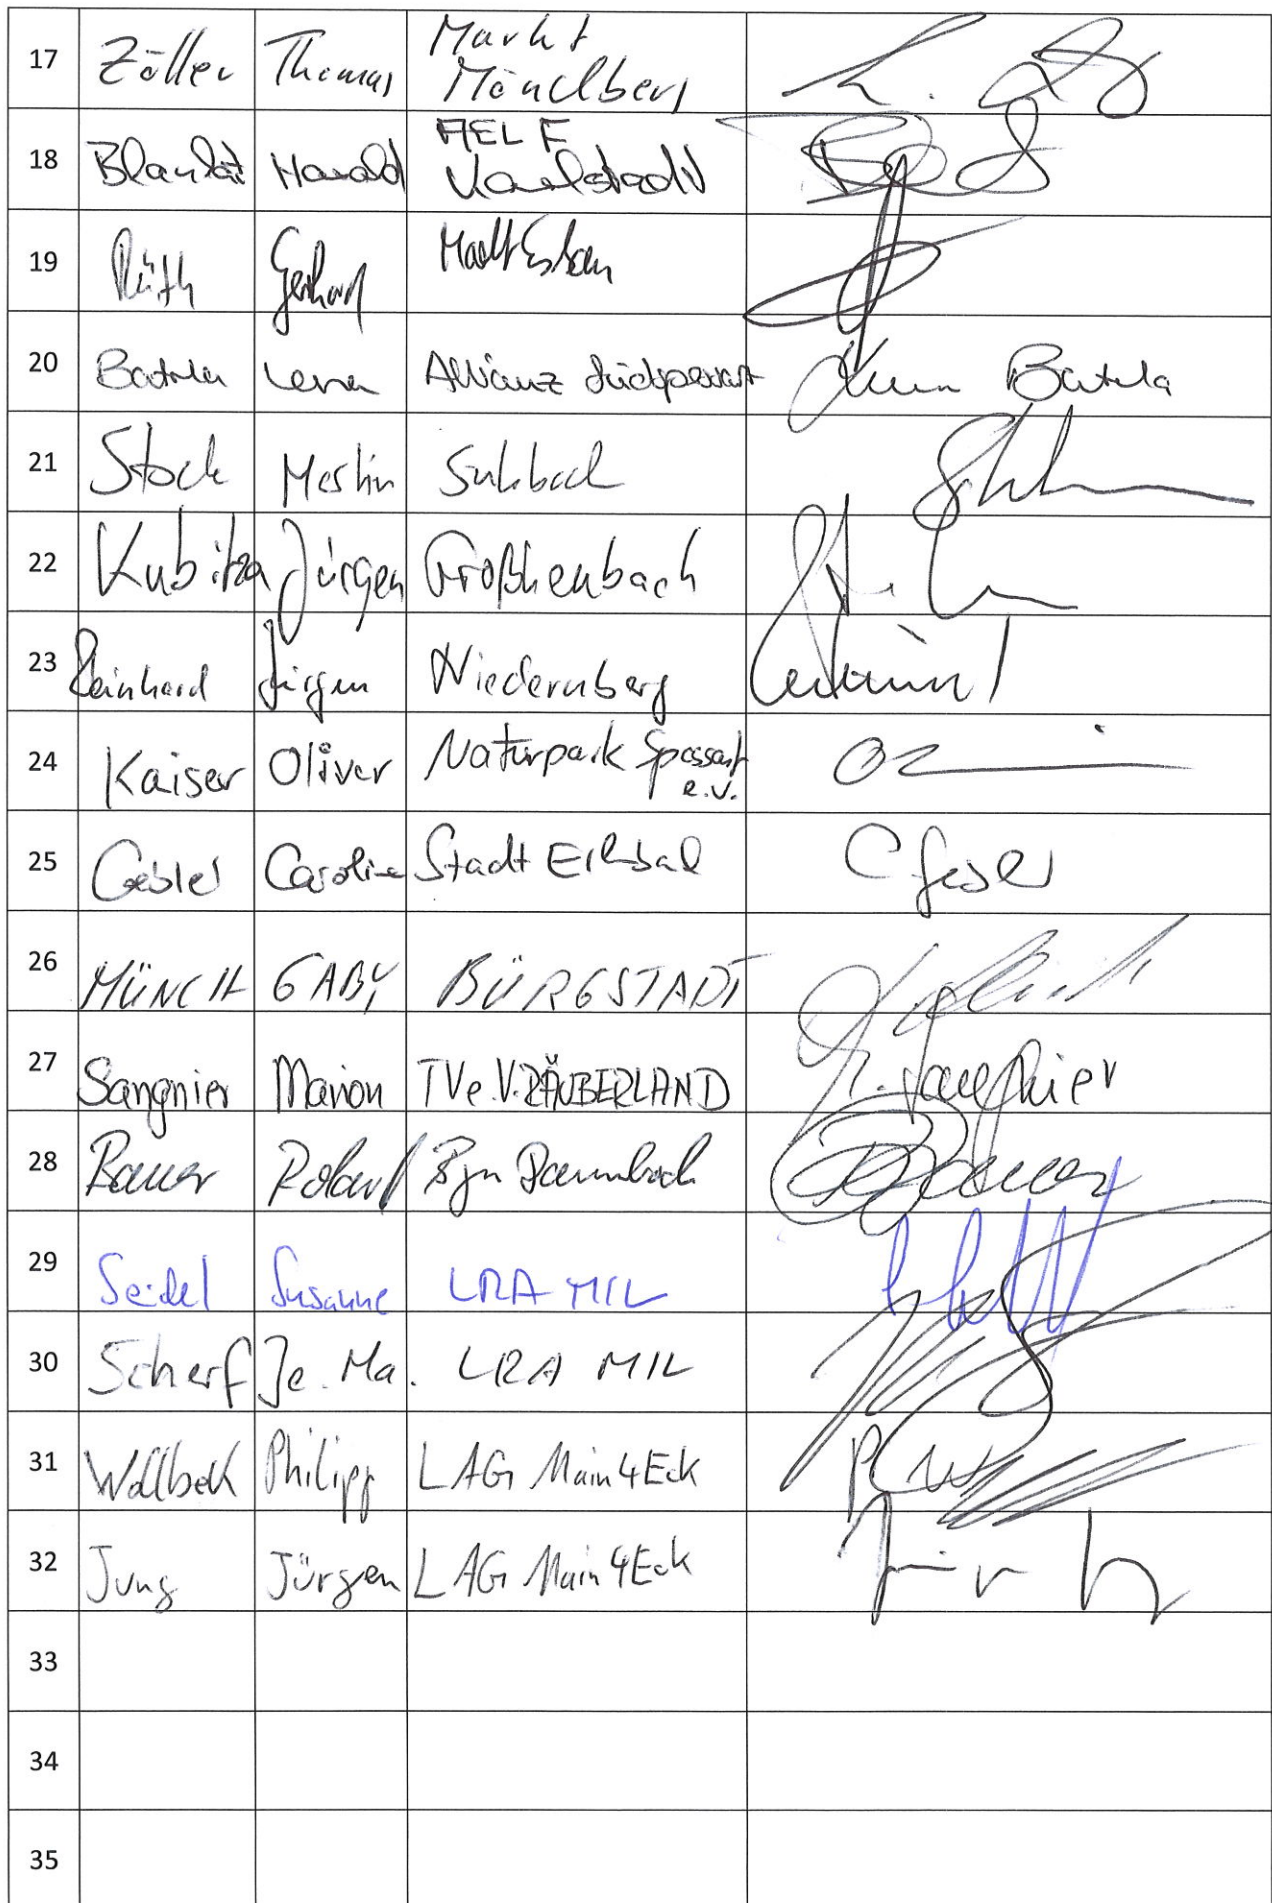 17 Zöller Thomas Markt
Mönchberg
18 Harald AELF
Karlstadt
19 Rüth Gerhard Markt
20 Batrla Lena Allianz Südspessart Lena Batrla
21 Stock Martin Sulzbach
22 Kubitza Jürgen Großheubach
23 Reinhard Jürgen Niedernberg
24 Kaiser Oliver Naturpark Spessart
e.V.
25 Caroline Stadt Erlenbach
26 MÜNCH GABY BÜRGSTADT
27 Sangnier Marion TV e.V. RÄUBERLAND M. Sangnier
28 Bauer Robert Bgm Dammbach Bauer
29 Seidel Susanne LRA MIL
30 Scherf Je. Ma. LRA MIL
31 Wollbeck Philipp LAG Main4Eck
32 Jung Jürgen LAG Main4Eck
33
34
35